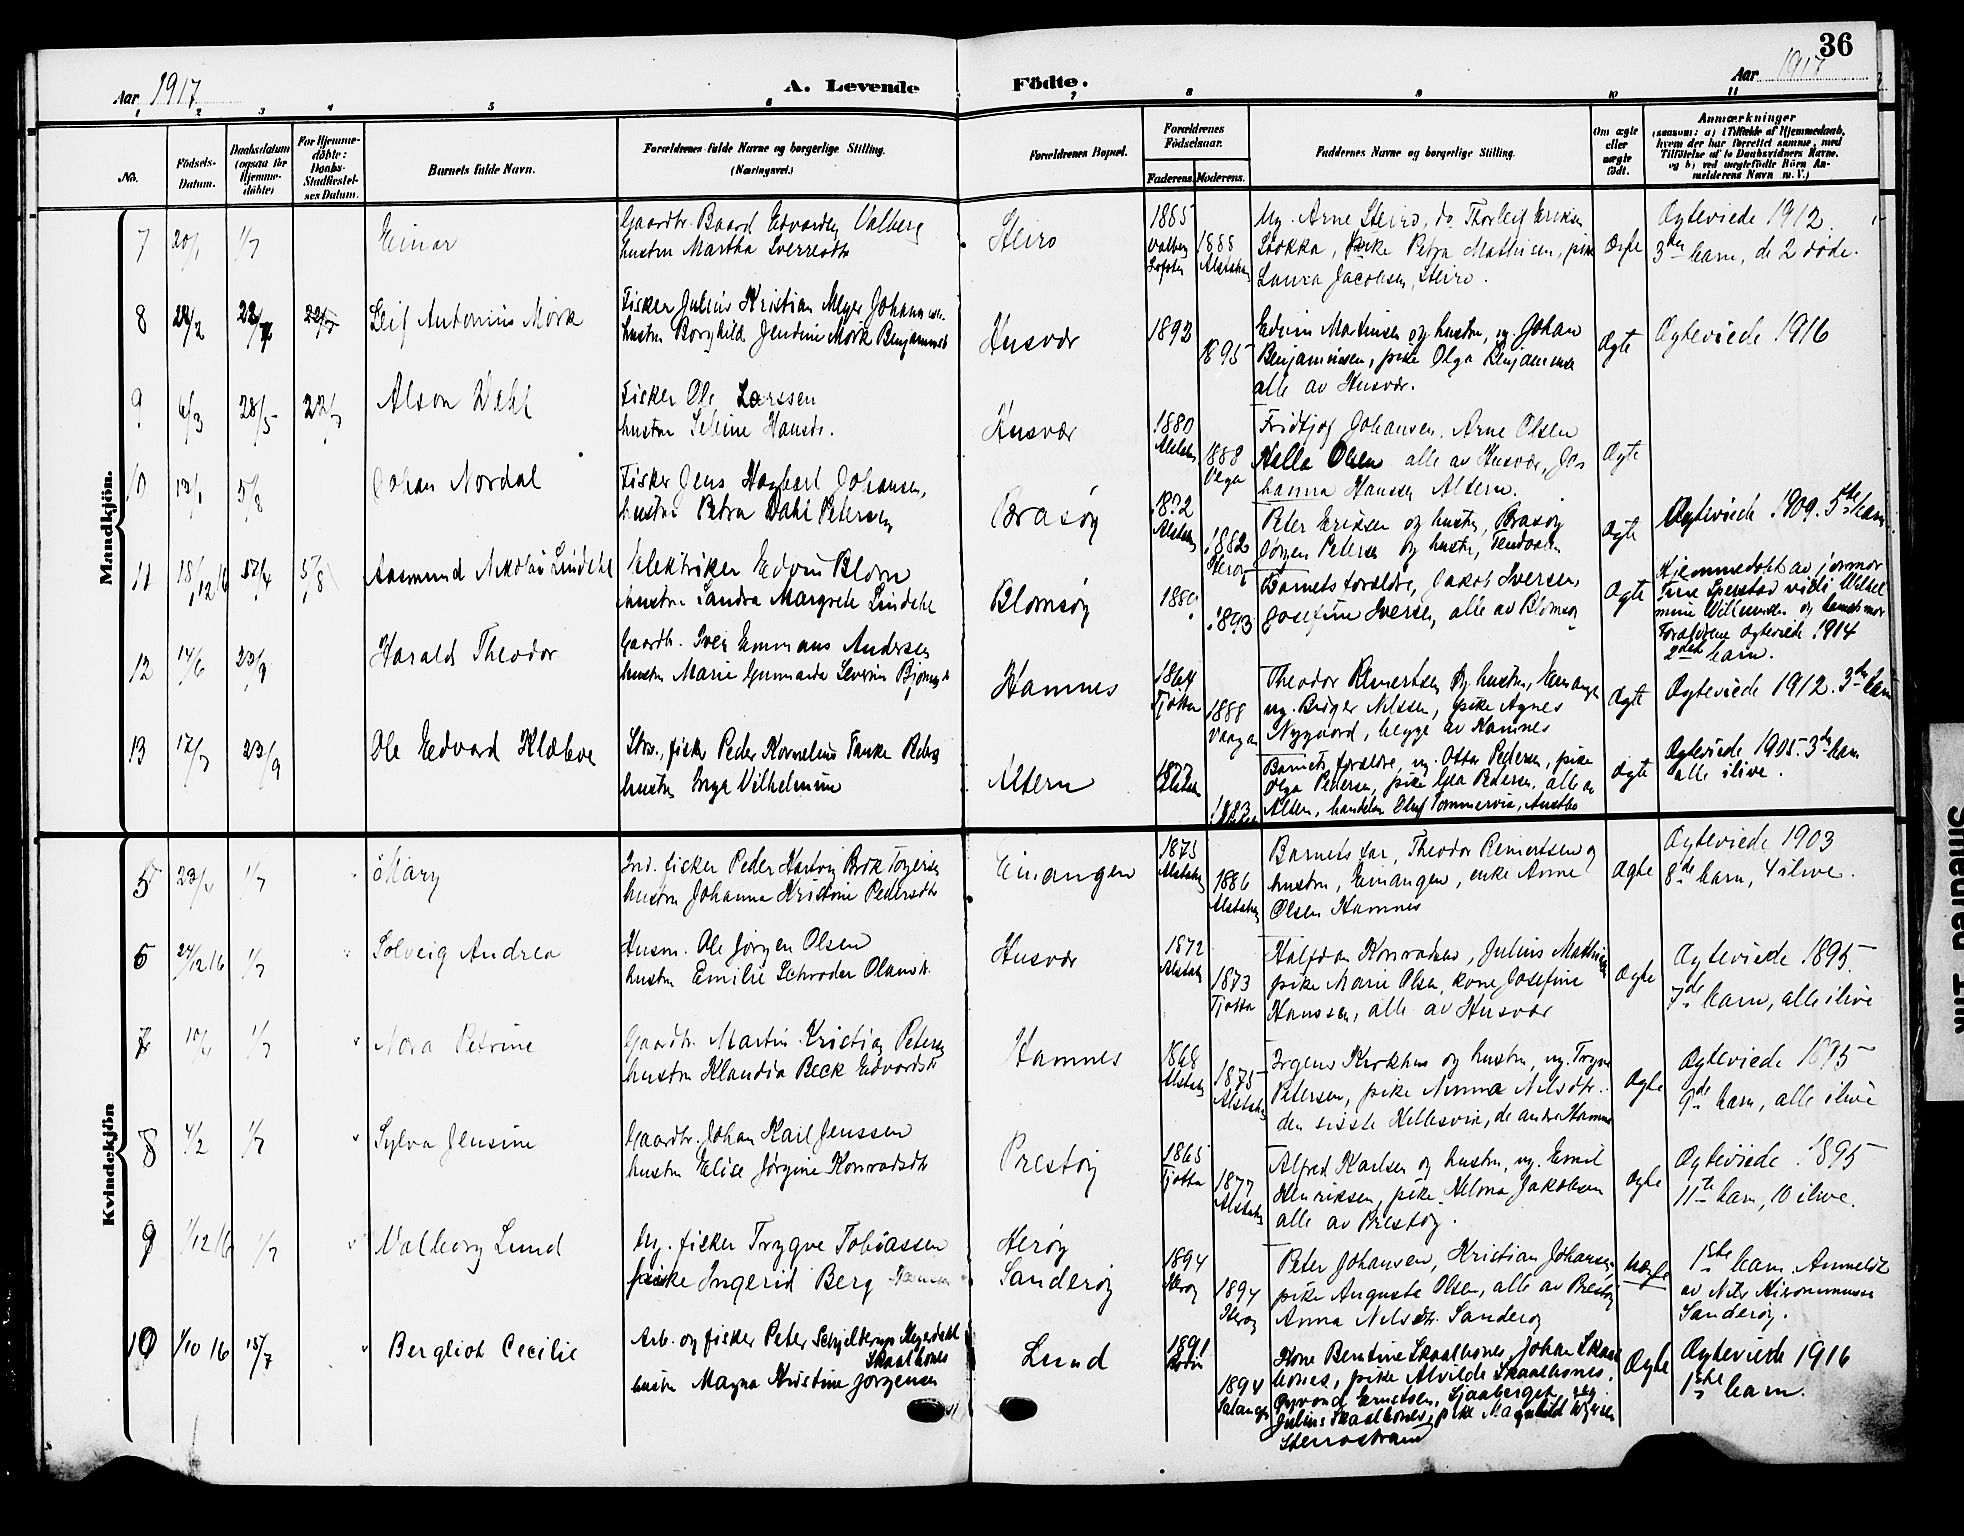 36
Aar 1917
A. Levende
Födte.
Aar 1917
1 2 3 4 5 6 7 8 9 10 11
No.
Födsels-
Datum.
Daabsdatum
(ogsaa for
Hjemme-
döbte)
For Hjemme-
döbte:
Daabs-
Stadfæstel-
ses Datum.
Barnets fulde Navn.
Forældrenes fulde Navne og borgerlige Stilling.
(Næringsvei.)
Forældrenes Bopæl.
Forældrenes
Födselsaar.
Faderens.
Moderens.
Faddernes Navne og borgerlige Stilling.
Om ægte
eller
uægte
født.
Anmærkninger
(saasom: a) i Tilfælde af Hjemmedaab,
hvem der har forrettet samme, med
Tilföielse af to Daabsvidners Navne.
og b) ved uægtefödte Börn An-
melderens Navn m. V.)
Mandkjön.
7 20/1 1/7 Einar
Gaardbr. Baard Edvardsen Valberg
hustru Martha Sverresdtr
Steiro
1885
Valberg
Lofoten
1885
Alstahg
Ug. Arne Steiro, do Thorleif Eriksen
Stokka, pike Petra Mathisen, pike
Laura Jacobsen, Steiro.
Ægte
Ægteviede 1912.
3die barn, de 2 døde.
8 Leif Antonius Mörk
Fisker Julius Kristian Meyer Johannessen
hustru Borghild Jendine Mørk Benjaminsdt
Husvær
1893
1895
Edvin Martinsen og hustru, ug. Johan
Benjaminsen, pike Olga Benjaminsen
alle av Husvær.
Ægte
Ægteviede 1916
9 6/3 28/5 22/7 Alson Dahl
Fisker Ole Larssen
hustru Seline Hansdtr.
Husvær
1880
Alstahg
1888
Vega
Fridtjof Johansen, Arne Olsen
Halla Olsen alle av Husvær, Jo-
hanna Hanssen Altern.
Ægte
10 5/8 Johan Nordal
Fisker Jens Hagbart Johansen,
hustru Petra Dahl Petersen
Brasøy
Alstahg
1882
Herøy
Peter Eriksen og hustru, Brasøy
Jørgen Petersen og hustru,
Ægte
Ægteviede 1909. 5te barn
11 18/12 16 5/8 Aasmund Nikolai Lindahl
Elektriker Edvin Blom
hustru Sandra Margrete Lindahl
Blomsøy
1893
Barnets foreldre, Jakob Iversen,
Josefine Iversen, alle av Blomsøy
Ægte
Hjemmedøbt av jormor
Foreldrene Ægteviede 1914
2det barn.
12 14/6 23/9 Harald Theodor
Gaardbr. Iver Emmaus Andersen
hustru Marie Gunnarda Severine
Hamnes
1864
Tjøtta
1888
Vaagan
Theodor Reinertsen og hustru, Einangen
ug. Birger Nilssen, pike Agnes
Nygaard, begge av Hamnes
Ægte
Ægteviede 1912. 3die barn
13 17/7 23/9 Ole Edvard Klæboe
Strs., fisker Peder Kornelius Tanke Peders
hustru Inga Vilhelmine
Altern
1877
Alstahg
1883
Barnets foreldre, ug. Ottar Pedersen, pike
Olga Pedersen, pike Lea Pedersen, alle av
Altern, handelsm Oluf Pommervig, Austbø
Ægte
Ægteviede 1905. 3die barn
alle ilive.
Kvindekjön
5 1/7 Mary
Ind. fisker Peder Hartvig Brok Torgersen
hustru Johanna Kristine Pedersdtr
Einangen
1875
Alstahg
1886
Alstahg
Barnets far, Theodor Reinertsen og
hustru, Einangen, enke Anne
Olsen Hamnes
Ægte
Ægteviede 1903
8de barn, 4 ilive.
6 24/12 16 1/7 Solveig Andrea
Husm. Ole Jørgen Olsen
hustru Emilie Schrøder Olausdt.
Husvær
1872
Alstahg
1873
Tjøtta
Halfdan Konradsen, Julius Mathisen
pike Marie Olsen, kone Josefine
Hanssen, alle av Husvær
Ægte
Ægteviede 1895.
7de barn, alle ilive
7 1/7 Nora Petrine
Gaardbr. Martin Kristian Petersen
hustru Klaudia Beck Edvardsdtr
Hamnes
1868
Alstahg
1875
Alstahg
Jørgens Kirkhus og hustru, ug. Trygve
Petersen, pike Ninna Nilsdtr.
den sisste Hellesvik, de andre Hamnes
Ægte
Ægteviede 1895
9de barn, alle ilive
8 4/2 1/7 Sylva Jensine
Gaardbr. Johan Karl Jenssen
hustru Elise Jørgine Konradsdtr
Prestøy
1865
Tjøtta
1877
Alstahg
Alfred Karlsen og hustru, ug. Emil
Henriksen, pike Helma Jakobsen
alle av Prestøy.
Ægte
Ægteviede 1895
11te barn, 10 ilive.
9 1/12 16 1/7 Valborg Lund
Ug. fisker Trygve Tobiassen
pike Ingerid Berg
Herøy
Sanderøy
1894
Herøy
1894
Herøy
Peter Johansen, Kristian Johansen,
pike Auguste Olsen, alle av Prestøy
Anna Nilsdtr. Sanderøy
Uægte
1ste barn. Anmeldt
av Nils Hieronimussen
Sanderøy.
10 1/10 16 15/7 Bergliot Cecilie
Arb. og fisker Peter Schjelderup Meyerdahl
Skaalbones
hustru Magna Kristine Jørgensen
Lund
1891
Bodin
1894
Salangen
Kone Bentine Skaalbones, Johan Skaal-
bones, pike Alvilde Skaalbones.
Øyvind Ernstsen, Sjaaberget, ug.
Julius Skaalbones, pike Magnhild
Steirostrand
Ægte
Ægteviede 1916
1ste barn.